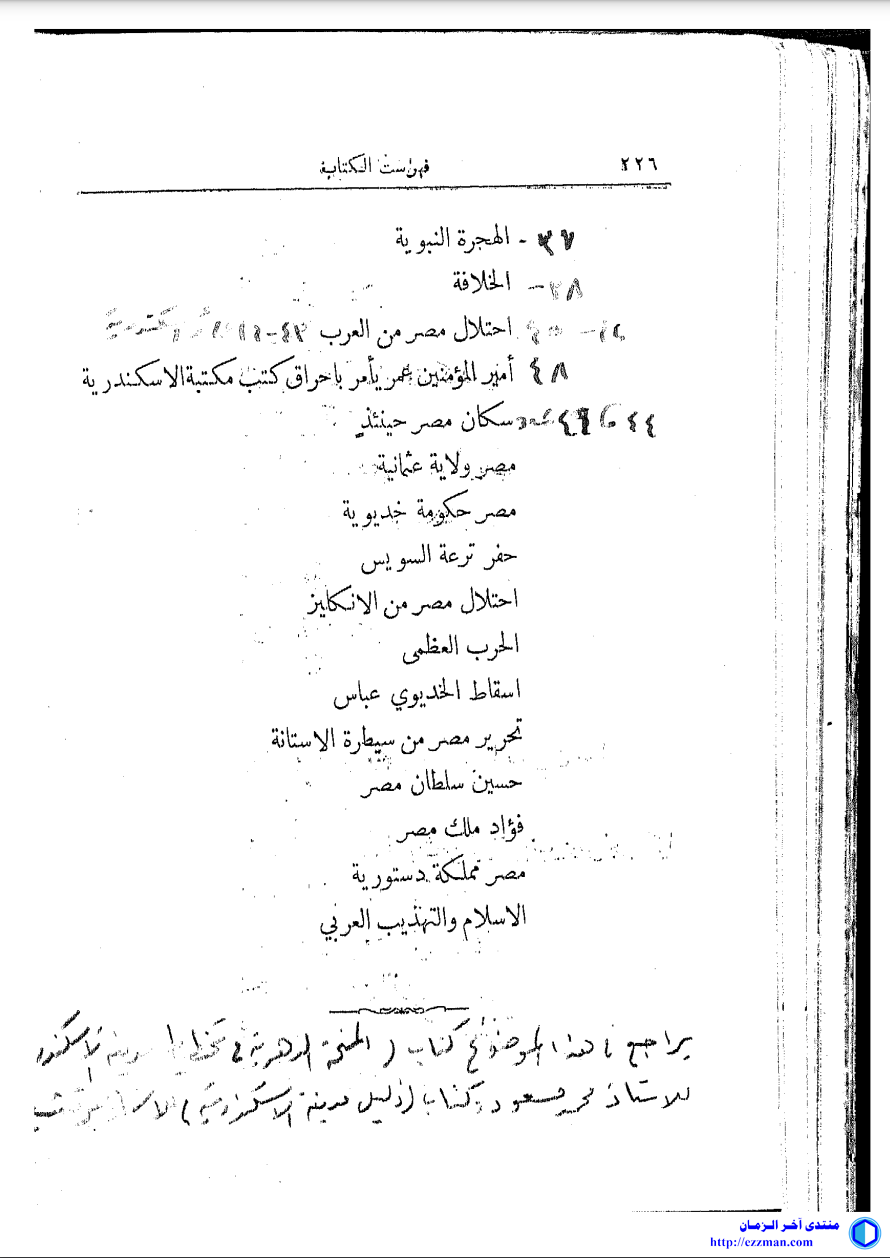 ٢٢٦ فهراست الكتابة
٣٧ - الهجرة النبوية
٣٨ - الخلافة
احتلال مصر من العرب
٤٨ أمير المؤمنين عمر يأمر باحراق كتب مكتبة الاسكندرية
سكان مصر حينئذ
مصر ولاية عثمانية
مصر حكومة خديوية
حفر ترعة السويس
احتلال مصر من الانكليز
الحرب العظمى
اسقاط الخديوي عباس
تحرير مصر من سيطرة الاستانة
حسين سلطان مصر
فؤاد ملك مصر
مصر مملكة دستورية
الاسلام والتهذيب العربي
يراجع هذا الموضوع كتاب ( المنحة الدهرية في تخطيط مدينة الاسكندرية
للاستاذ محمد مسعود وكتاب (دليل مدينة الاسكندرية )
منتدى آخر الزمان
http://ezzman.com